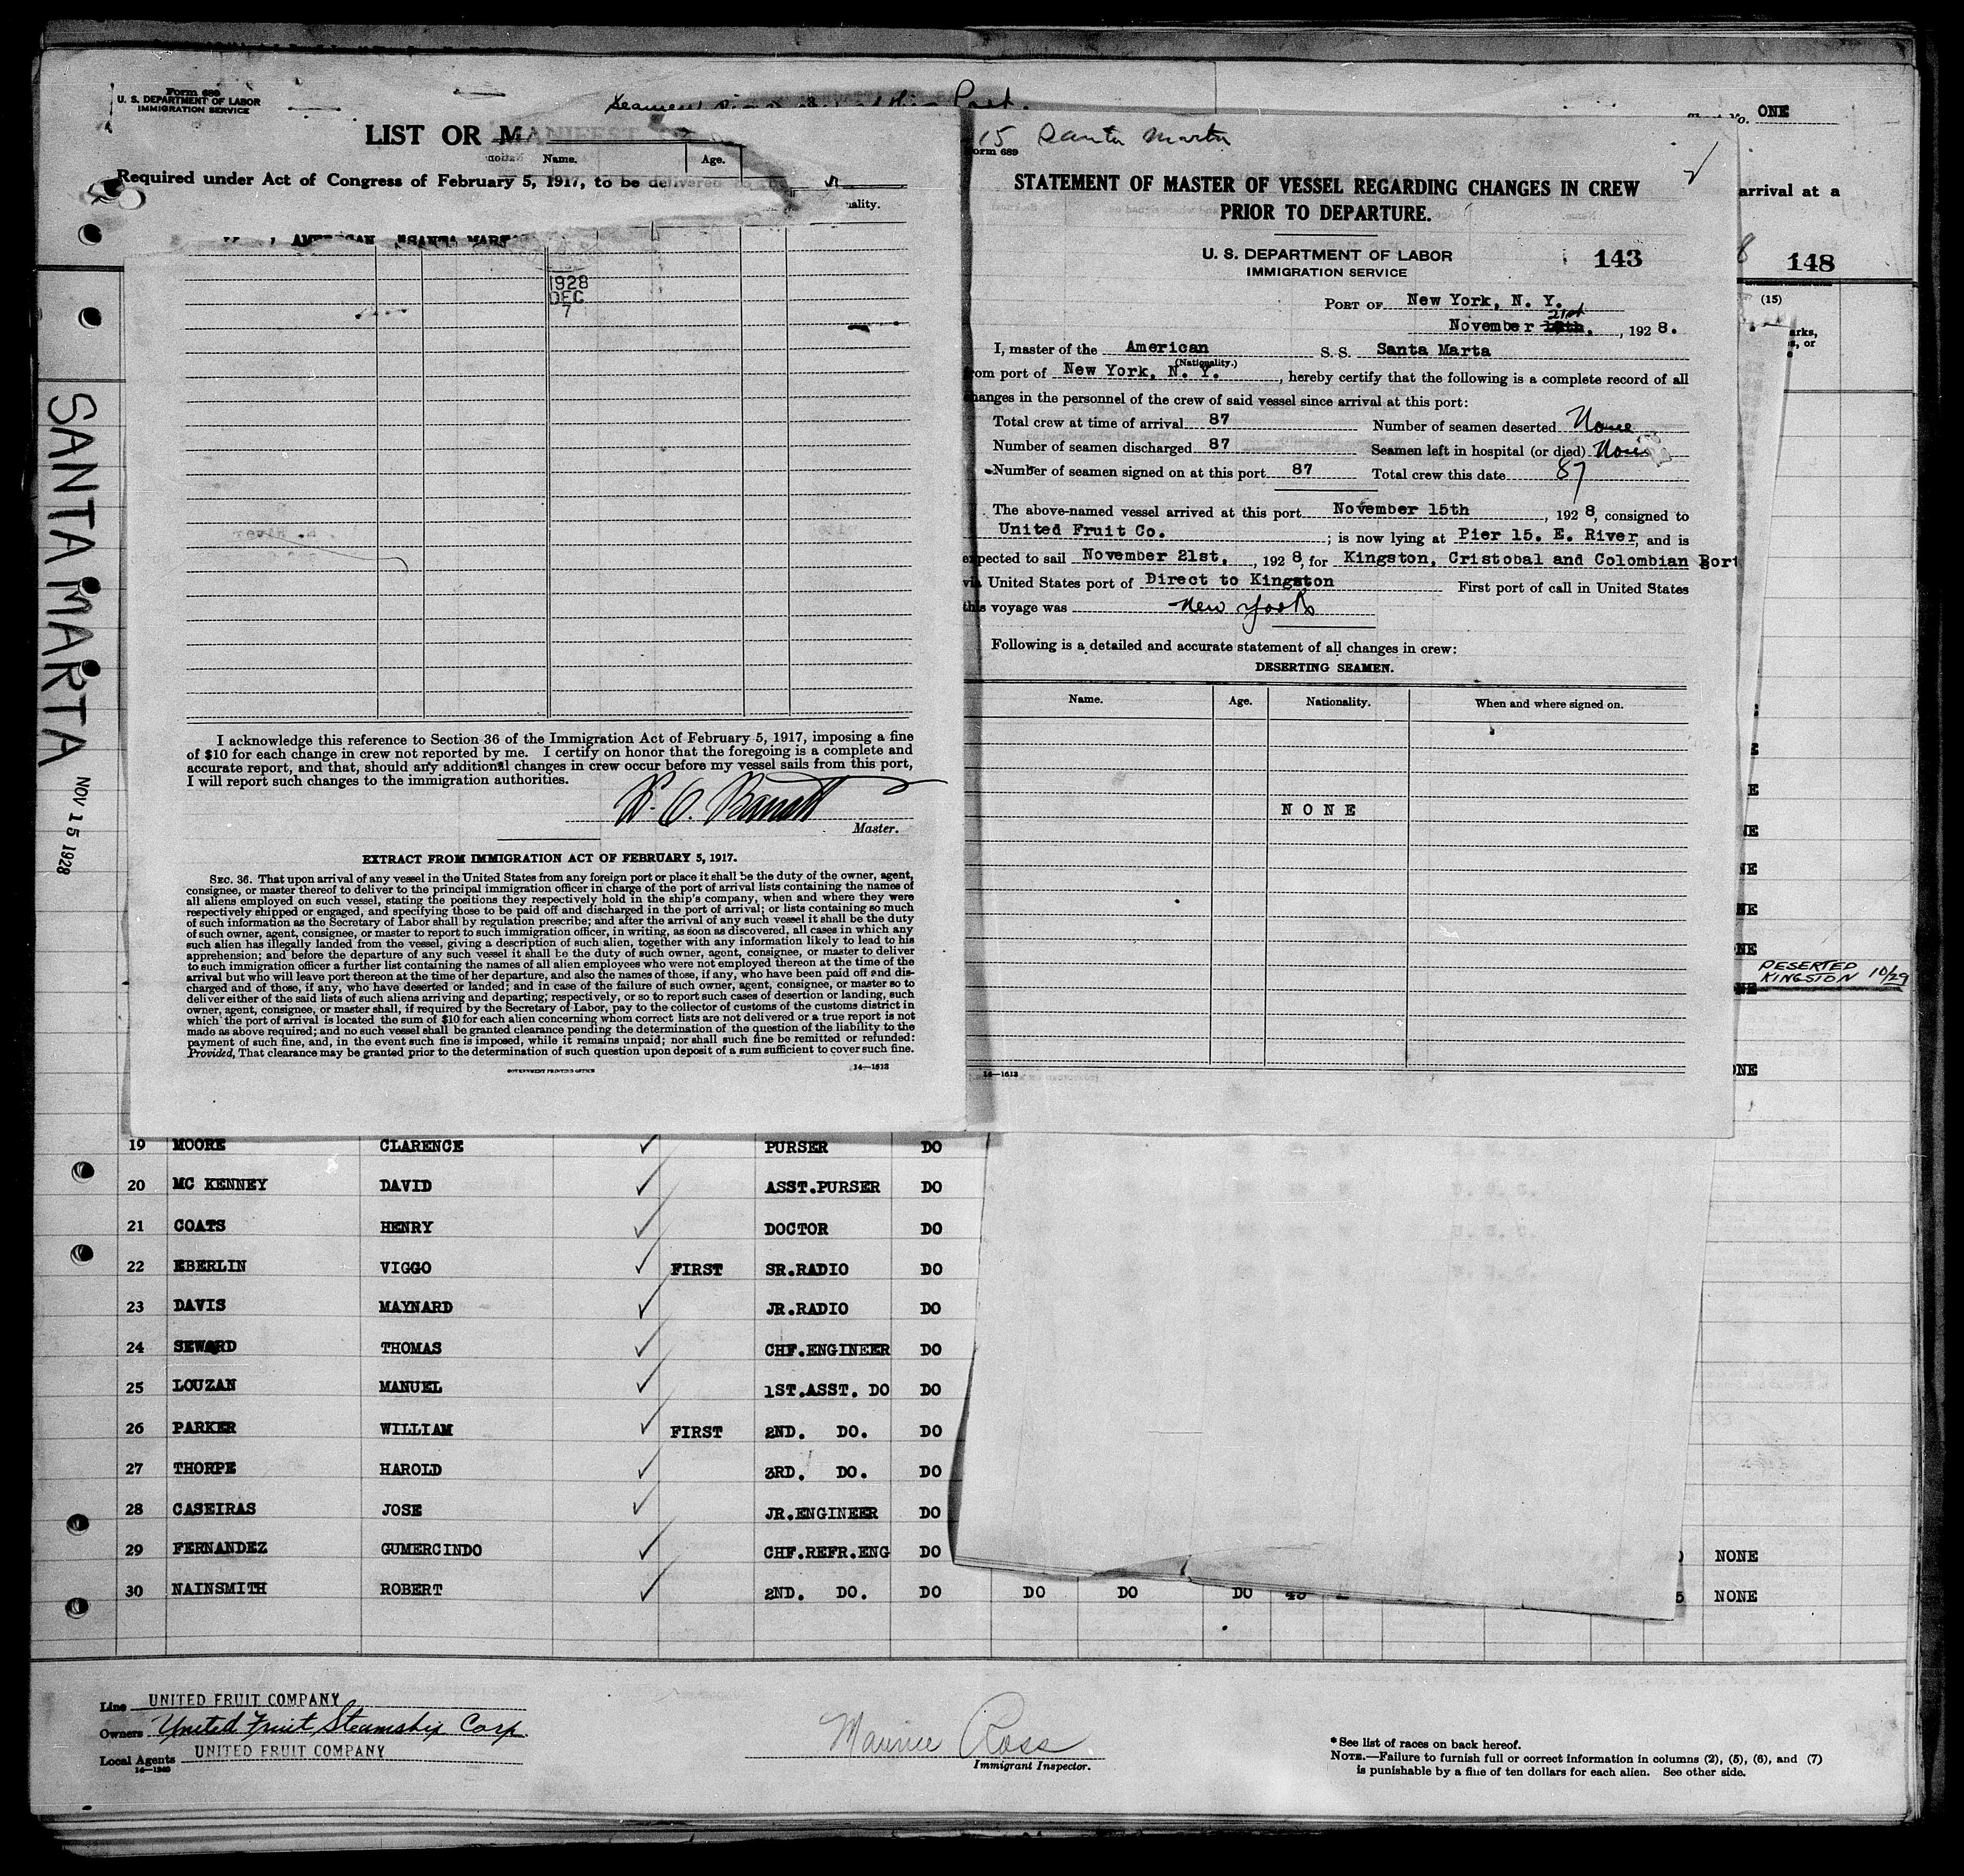 Form 689
U. S. DEPARTMENT OF LABOR
IMMIGRATION SERVICE
LIST OR MANIFEST
Name.
Age.
Required under Act of Congress of February 5, 1917, to be delivered
ality.
AMERICAN SANTA MART
1928
DEC
7
I acknowledge this reference to Section 36 of the Immigration Act of February 5, 1917, imposing a fine
of $10 for each change in crew not reported by me. I certify on honor that the foregoing is a complete and
accurate report, and that, should any additional changes in crew occur before my vessel sails from this port,
I will report such changes to the immigration authorities.
Master.
EXTRACT FROM IMMIGRATION ACT OF FEBRUARY 5, 1917.
SEC. 36. That upon arrival of any vessel in the United States from any foreign port or place it shall be the duty of the owner, agent,
consignee, or master thereof to deliver to the principal immigration officer in charge of the port of arrival lists containing the names of
all aliens employed on such vessel, stating the positions they respectively hold in the ship's company, when and where they were
respectively shipped or engaged, and specifying those to be paid off and discharged in the port of arrival; or lists containing so much
of such information as the Secretary of Labor shall by regulation prescribe; and after the arrival of any such vessel it shall be the duty
of such owner, agent, consignee, or master to report to such immigration officer, in writing, as soon as discovered, all cases in which any
such alien has illegally landed from the vessel, giving a description of such alien, together with any information likely to lead to his
apprehension; and before the departure of any such vessel it shall be the duty of such owner, agent, consignee, or master to deliver
to such immigration officer a further list containing the names of all alien employees who were not employed thereon at the time of the
arrival but who will leave port thereon at the time of her departure, and also the names of those, if any, who have been paid off and dis-
charged and of those, if any, who have deserted or landed; and in case of the failure of such owner, agent, consignee, or master so to
deliver either of the said lists of such aliens arriving and departing; respectively, or so to report such cases of desertion or landing, such
owner, agent, consignee, or master shall, if required by the Secretary of Labor, pay to the collector of customs of the customs district in
which the port of arrival is located the sum of $10 for each alien concerning whom correct lists are not delivered or a true report is not
made as above required; and no such vessel shall be granted clearance pending the determination of the question of the liability to the
payment of such fine, and, in the event such fine is imposed, while it remains unpaid; nor shall such fine be remitted or refunded:
Provided, That clearance may be granted prior to the determination of such question upon deposit of a sum sufficient to cover such fine.
GOVERNMENT PRINTING OFFICE
14—1613
SANTA MARTA
NOV 15 1928
15 Santa Marta
orm 689
STATEMENT OF MASTER OF VESSEL REGARDING CHANGES IN CREW
PRIOR TO DEPARTURE.
U. S. DEPARTMENT OF LABOR
IMMIGRATION SERVICE
143
PORT OF New York, N. Y.
21st
November , 1928.
I, master of the American S. S. Santa Marta
(Nationality.)
om port of New York, N. Y., hereby certify that the following is a complete record of all
hanges in the personnel of the crew of said vessel since arrival at this port:
Total crew at time of arrival 87 Number of seamen deserted None
Number of seamen discharged 87 Seamen left in hospital (or died) None
Number of seamen signed on at this port 87 Total crew this date 87
The above-named vessel arrived at this port November 15th, 1928, consigned to
United Fruit Co.; is now lying at Pier 15. E. River, and is
expected to sail November 21st., 1928, for Kingston, Cristobal and Colombian Port
via United States port of Direct to Kingston First port of call in United States
this voyage was New York
Following is a detailed and accurate statement of all changes in crew:
DESERTING SEAMEN.
Name. Age. Nationality. When and where signed on.
NONE
14—1613
No. ONE
arrival at a
8 148
(15)
arks,
s, or
E
NE
NE
NE
ONE
DESERTED
KINGSTON 10/29
ONE
19 MOORE CLARENCE PURSER DO
20 MC KENNEY DAVID ASST.PURSER DO
21 COATS HENRY DOCTOR DO
22 EBERLIN VIGGO FIRST SR.RADIO DO
23 DAVIS MAYNARD JR.RADIO DO
24 SEWARD THOMAS CHF.ENGINEER DO
25 LOUZAN MANUEL 1ST.ASST. DO DO
26 PARKER WILLIAM FIRST 2ND. DO. DO
27 THORPE HAROLD 3RD. DO. DO
28 CASEIRAS JOSE JR.ENGINEER DO
29 FERNANDEZ GUMERCINDO CHF.REFR.ENG DO NONE
30 NAINSMITH ROBERT 2ND. DO. DO DO DO DO NONE
Line UNITED FRUIT COMPANY
Owners United Fruit Steamship Corp.
Local Agents UNITED FRUIT COMPANY
14—1240
Maurice Ross
Immigrant Inspector.
*See list of races on back hereof.
NOTE.—Failure to furnish full or correct information in columns (2), (5), (6), and (7)
is punishable by a fine of ten dollars for each alien. See other side.